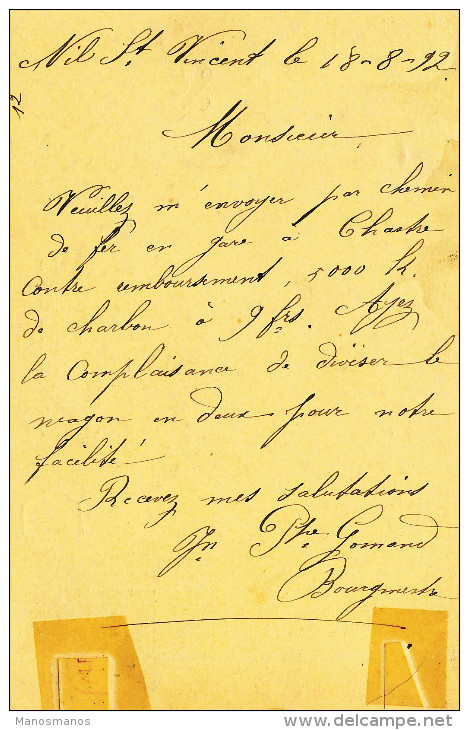 Nil St. Vincent le 18-8-92.
12
Monsieur
Veuillez m'envoyer par chemin
de fer en gare à Chastre
contre remboursement, 5000 k.
de charbon à 9 frs. Ayez
la complaisance de diviser le
wagon en deux pour notre
facilité.
Recevez mes salutations
Jn Phe Gomand
Bourgmestre
Manosmanos
delcampe.net